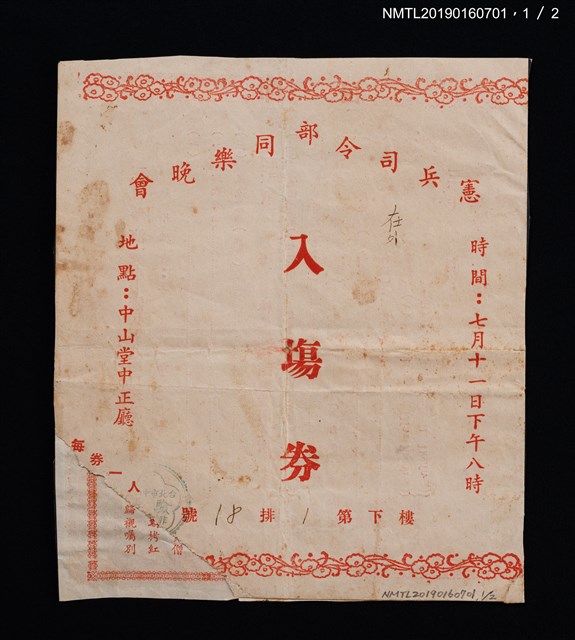 NMTL20190160701,1/2
憲兵司令部同樂晚會
時間：七月十一日下午八時
入場券
地點：中山堂中正廳
樓下第1排18號
每券一人
NMTL20190160701,1/2